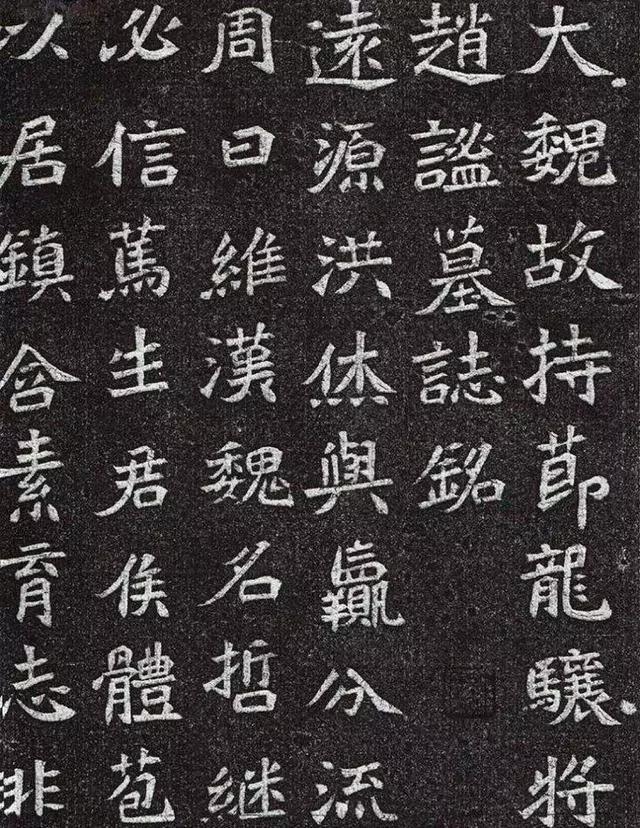 大魏故持莭龍驤將
趙謐墓誌銘
遠源洪烋與贏分流
周曰維漢魏名哲継
必信篤生君侯體苞
以居鎮含素育志非